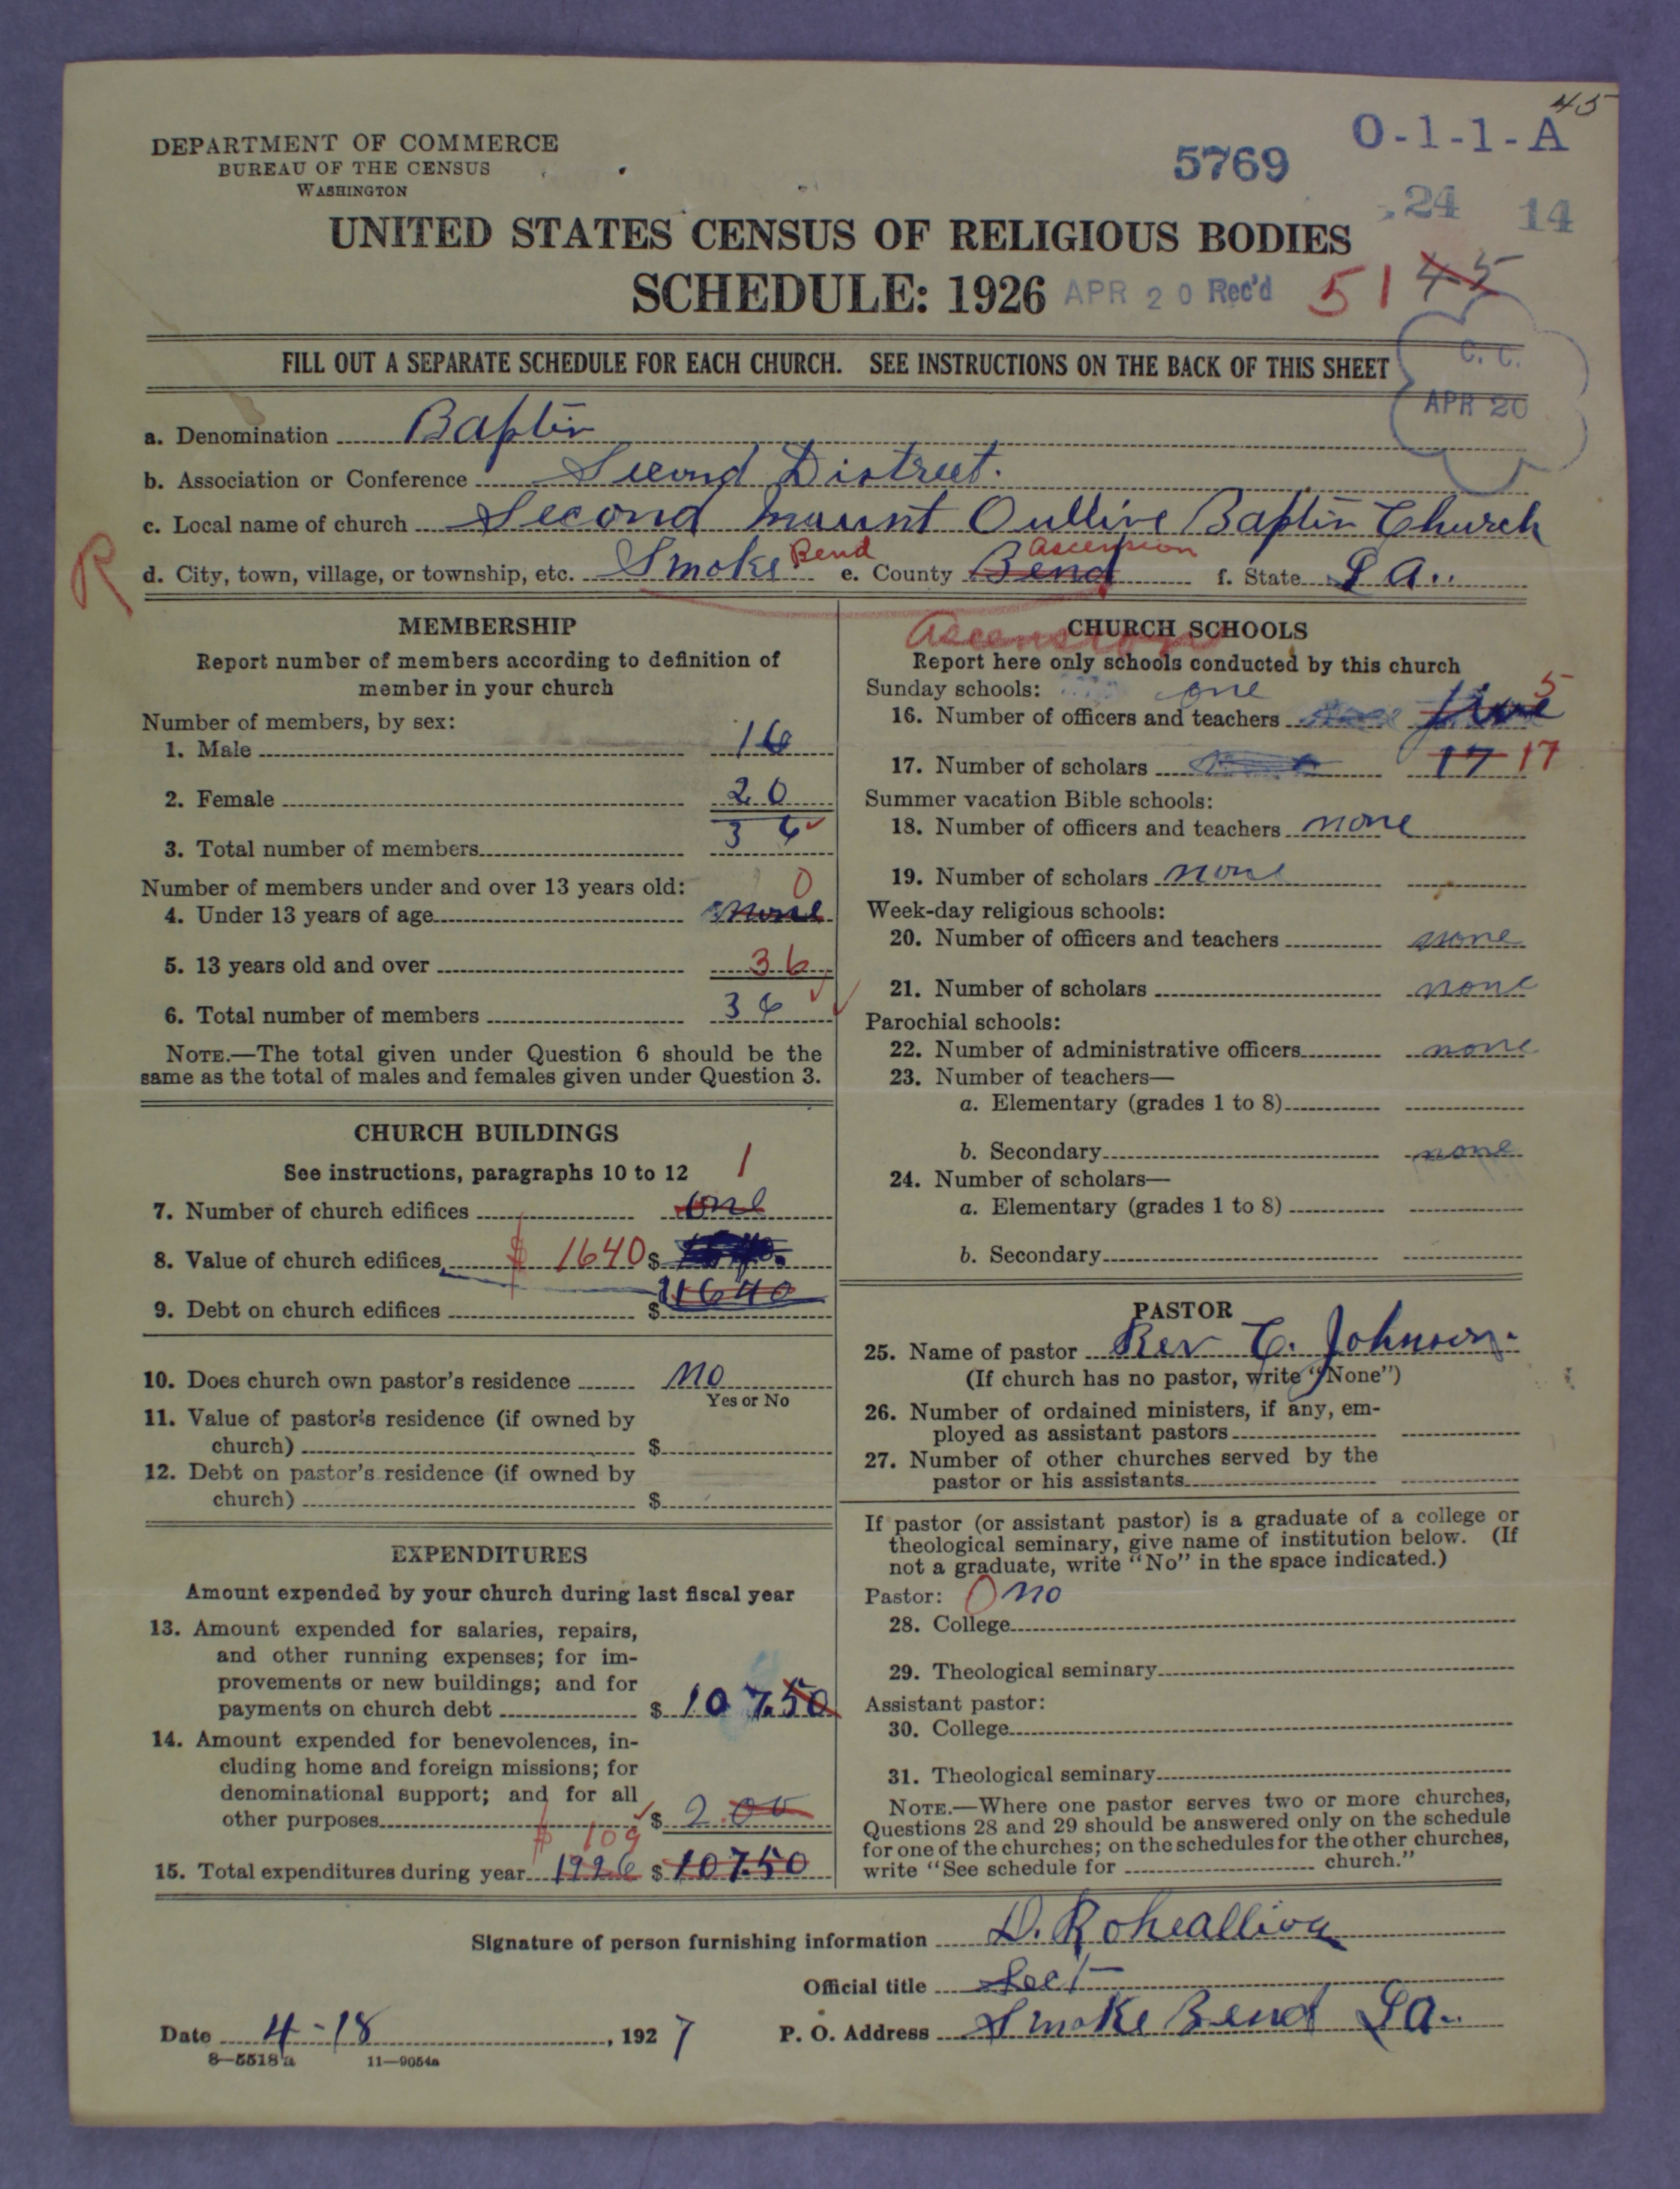 45
DEPARTMENT OF COMMERCE
BUREAU OF THE CENSUS
WASHINGTON
5769
O-1-1-A
24 14
UNITED STATES CENSUS OF RELIGIOUS BODIES
SCHEDULE: 1926
APR 20 Rec'd
51 45
FILL OUT A SEPARATE SCHEDULE FOR EACH CHURCH. SEE INSTRUCTIONS ON THE BACK OF THIS SHEET
C. C.
APR 20
a. Denomination Baptis
b. Association or Conference Second Distreet.
c. Local name of church Second mount Oullive Baptis Church
R
d. City, town, village, or township, etc. Smoke Bend e. County Bend Ascension f. State La.
MEMBERSHIP
Report number of members according to definition of
member in your church
Number of members, by sex:
1. Male 16
2. Female 20
3. Total number of members 36
Number of members under and over 13 years old:
4. Under 13 years of age none 0
5. 13 years old and over 36
6. Total number of members 36
NOTE.—The total given under Question 6 should be the
same as the total of males and females given under Question 3.
CHURCH BUILDINGS
See instructions, paragraphs 10 to 12
7. Number of church edifices one 1
8. Value of church edifices $ 1640 $
9. Debt on church edifices $ 1640
10. Does church own pastor's residence no
Yes or No
11. Value of pastor's residence (if owned by
church) $
12. Debt on pastor's residence (if owned by
church) $
EXPENDITURES
Amount expended by your church during last fiscal year
13. Amount expended for salaries, repairs,
and other running expenses; for im-
provements or new buildings; and for
payments on church debt $ 107.50
14. Amount expended for benevolences, in-
cluding home and foreign missions; for
denominational support; and for all
other purposes $ 2.00
$ 109
15. Total expenditures during year 1926 $ 107.50
Ascension
CHURCH SCHOOLS
Report here only schools conducted by this church
Sunday schools: one
16. Number of officers and teachers five 5
17. Number of scholars 17 17
Summer vacation Bible schools:
18. Number of officers and teachers none
19. Number of scholars none
Week-day religious schools:
20. Number of officers and teachers none
21. Number of scholars none
Parochial schools:
22. Number of administrative officers none
23. Number of teachers—
a. Elementary (grades 1 to 8)
b. Secondary none
24. Number of scholars—
a. Elementary (grades 1 to 8)
b. Secondary
PASTOR
25. Name of pastor Rev C. Johnson.
(If church has no pastor, write "None")
26. Number of ordained ministers, if any, em-
ployed as assistant pastors
27. Number of other churches served by the
pastor or his assistants
If pastor (or assistant pastor) is a graduate of a college or
theological seminary, give name of institution below. (If
not a graduate, write "No" in the space indicated.)
Pastor: 0 no
28. College
29. Theological seminary
Assistant pastor:
30. College
31. Theological seminary
NOTE.—Where one pastor serves two or more churches,
Questions 28 and 29 should be answered only on the schedule
for one of the churches; on the schedules for the other churches,
write "See schedule for church."
Signature of person furnishing information D.
Official title Sect
Date 4-18, 1927 P. O. Address Smoke Bend La.
8—5518a 11—9054a